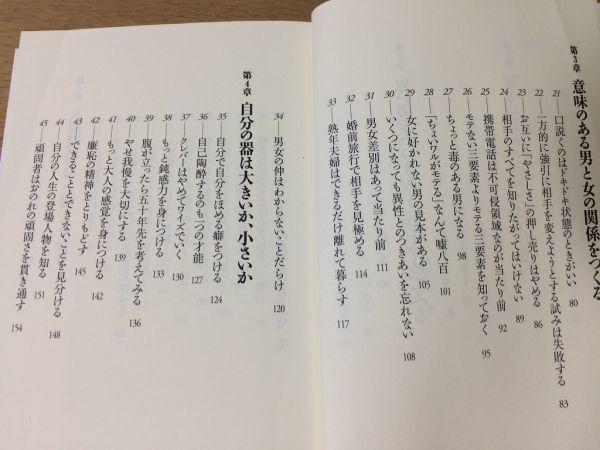 第3章 意味のある男と女の関係をつくる
21──口説くのはドキドキ状態のときがいい 80
22──一方的に強引に相手を変えようとする試みは失敗する 83
23──お互いに「やさしさ」の押し売りはやめる 86
24──相手のすべてを知りたがってはいけない 89
25──携帯電話は不可侵領域なのが当たり前 92
26──モテない三要素よりモテる三要素を知っておく 95
27──ちょっと毒のある男になる 98
28──「ちょいワルがモテる」なんて嘘八百 101
29──女に好かれない男の見本がある 105
30──いくつになっても異性とのつきあいを忘れない 108
31──男女差別はあって当たり前 111
32──婚前旅行で相手を見極める 114
33──熟年夫婦はできるだけ離れて暮らす 117
34──男女の仲はわからないことだらけ 120
第4章 自分の器は大きいか、小さいか
35──自分で自分をほめる癖をつける 124
36──自己陶酔するのも一つの才能 127
37──クレバーはやめてワイズでいく 130
38──もっと鈍感力を身につける 133
39──腹が立ったら五十年先を考えてみる 136
40──やせ我慢を大切にする 139
41──もっと大人の感覚を身につける 142
42──廉恥の精神をとりもどす 145
43──できることとできないことを見分ける 148
44──自分の人生の登場人物を知る 151
45──頑固者はおのれの頑固さを貫き通す 154